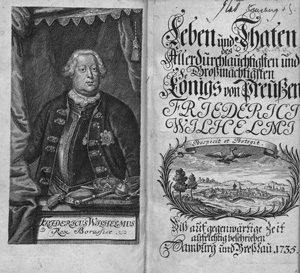 FRIDERICUS WILHELMUS
Rex Borussiæ
Leben und Thaten
des
Allerdurchlauchtigsten und
Großmächtigsten
Königs von Preußen
FRIEDERICI
WILHELMI
Prospicit et Protegit.
Biß auf gegenwärtige Zeit
aufrichtig beschrieben
Hamburg und Breßlau. 1735.